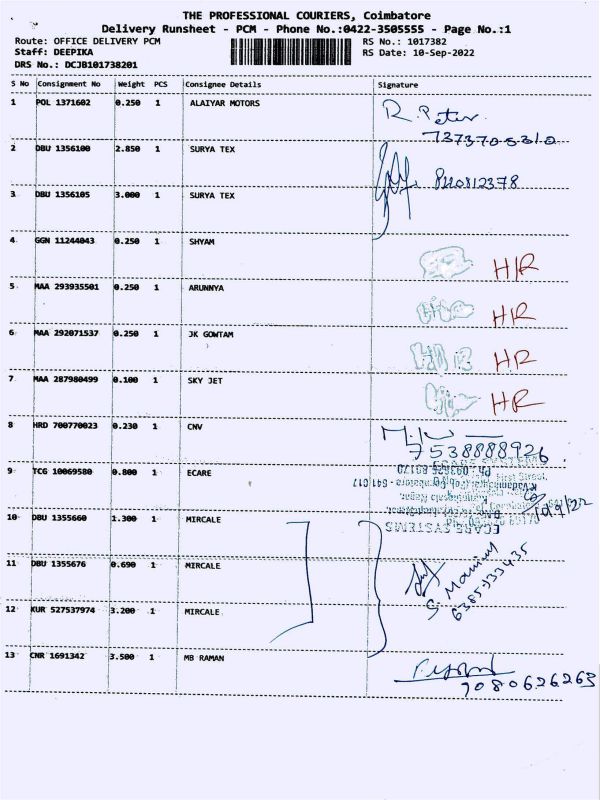 THE PROFESSIONAL COURIERS, Coimbatore
Delivery Runsheet - PCM - Phone No.:0422-3505555 - Page No.:1
Route: OFFICE DELIVERY PCM RS No.: 1017382
Staff: DEEPIKA RS Date: 10-Sep-2022
DRS No.: DCJB101738201
S No Consignment No Weight PCS Consignee Details Signature
1 POL 1371602 0.250 1 ALAIYAR MOTORS R. Peter
7373705310
2 DBU 1356100 2.850 1 SURYA TEX
3 DBU 1356105 3.000 1 SURYA TEX
4 GGN 11244043 0.250 1 SHYAM HR
5 MAA 293935501 0.250 1 ARUNNYA HR
6 MAA 292071537 0.250 1 JK GOWTAM HR
7 MAA 287980499 0.100 1 SKY JET HR
8 HRD 700770023 0.230 1 CNV
7538888926
9 TCG 10069580 0.800 1 ECARE
ECARE SYSTEMS
10 DBU 1355660 1.300 1 MIRCALE
11 DBU 1355676 0.690 1 MIRCALE
12 KUR 527537974 3.200 1 MIRCALE
13 CNR 1691342 3.500 1 MB RAMAN
9080626263